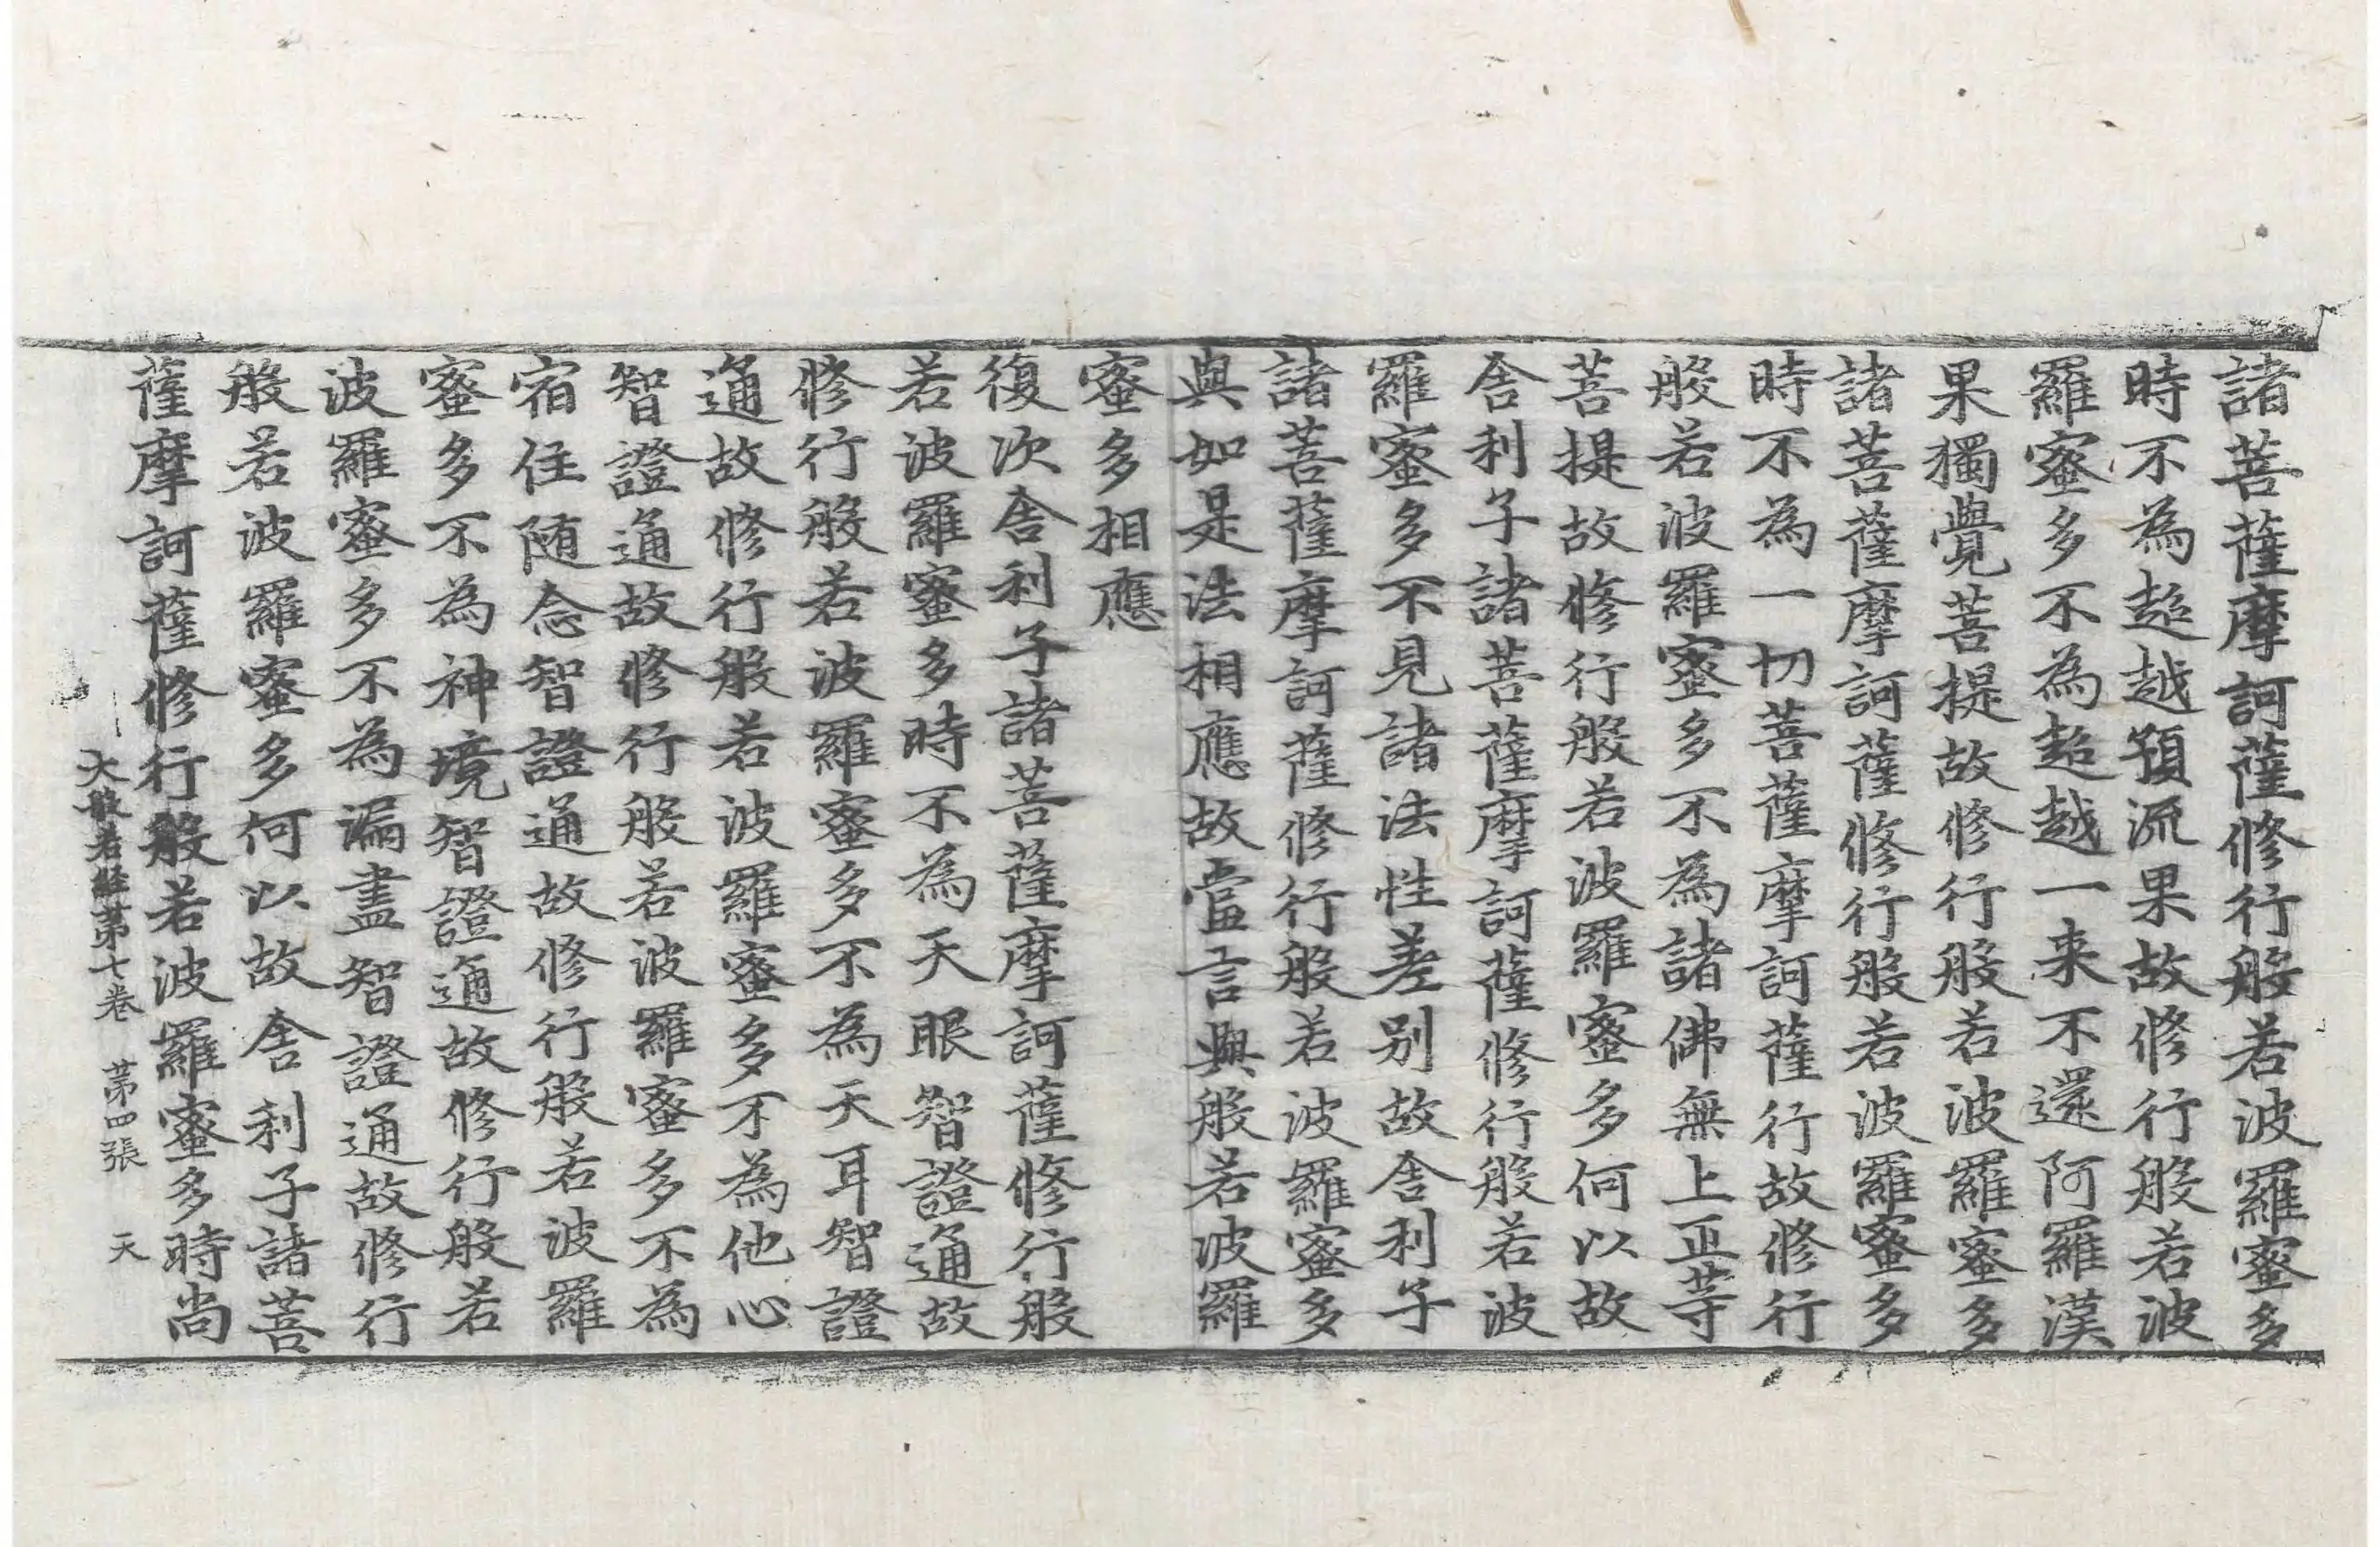 諸菩薩摩訶薩修行般若波羅蜜多
時不為超越預流果故修行般若波
羅蜜多不為超越一来不還阿羅漢
果獨覺菩提故修行般若波羅蜜多
諸菩薩摩訶薩修行般若波羅蜜多
時不為一切菩薩摩訶薩行故修行
般若波羅蜜多不為諸佛無上正等
菩提故修行般若波羅蜜多何以故
舎利子諸菩薩摩訶薩修行般若波
羅蜜多不見諸法性差别故舎利子
諸菩薩摩訶薩修行般若波羅蜜多
與如是法相應故當言與般若波羅
蜜多相應
復次舎利子諸菩薩摩訶薩修行般
若波羅蜜多時不為天眼智證通故
修行般若波羅蜜多不為天耳智證
通故修行般若波羅蜜多不為他心
智證通故修行般若波羅蜜多不為
宿住随念智證通故修行般若波羅
蜜多不為神境智證通故修行般若
波羅蜜多不為漏盡智證通故修行
般若波羅蜜多何以故舎利子諸菩
薩摩訶薩修行般若波羅蜜多時尚
大般若經第七卷 第四張 天